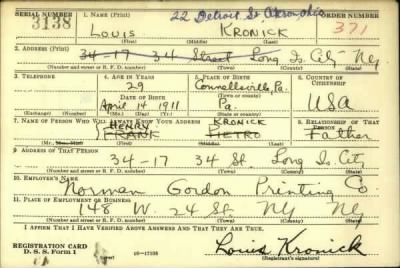 SERIAL NUMBER 1. NAME (Print) 22 Detroit St Akron Ohio ORDER NUMBER
3138 LOUIS KRONICK 371
(First) (Middle) (Last)
2. ADDRESS (Print)
34-17 34 Street Long Is. City Ny
(Number and street or R. F. D. number) (Town) (County) (State)
3. TELEPHONE 4. AGE IN YEARS 5. PLACE OF BIRTH 6. COUNTRY OF CITIZENSHIP
29 Connellsville, Pa.
DATE OF BIRTH (Town or county)
April 14 1911 Pa. USA
(Exchange) (Number) (Mo.) (Day) (Yr.) (State or country)
7. NAME OF PERSON WHO WILL ALWAYS KNOW YOUR ADDRESS 8. RELATIONSHIP OF THAT PERSON
HENRY KRONICK
FRANK PIETRO Father
(First) (Middle) (Last)
9. ADDRESS OF THAT PERSON
34-17 34 St. Long Is. City
(Number and street or R. F. D. number) (Town) (County) (State)
10. EMPLOYER'S NAME
Norman Gordon Printing Co.
11. PLACE OF EMPLOYMENT OR BUSINESS
148 W. 24 St. NY NY
(Number and street or R. F. D. number) (Town) (County) (State)
I AFFIRM THAT I HAVE VERIFIED ABOVE ANSWERS AND THAT THEY ARE TRUE.
REGISTRATION CARD Louis Kronick
D. S. S. Form 1 16—17105 (Registrant's signature)